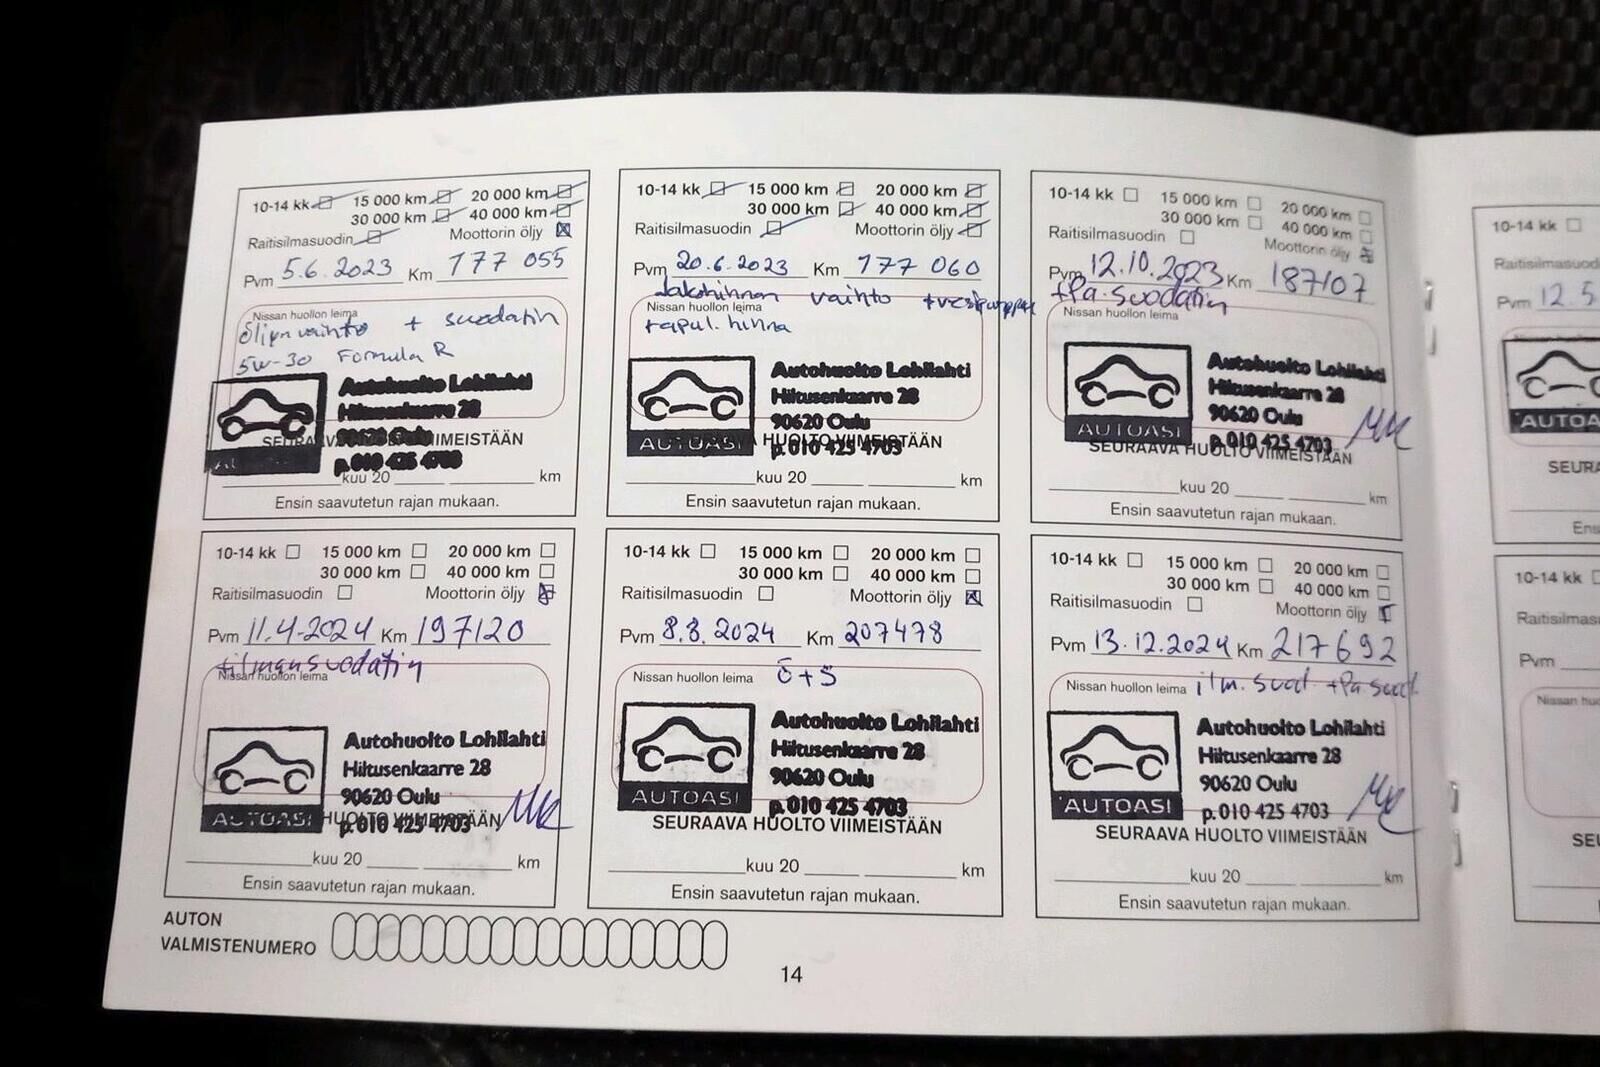 10-14 kk 15 000 km 20 000 km
30 000 km 40 000 km
Raitisilmasuodin Moottorin öljy
Pvm 5.6.2023 Km 177 055
Nissan huollon leima
öljyn vaihto + suodatin
5W-30 Formula R
Autohuolto Lohilahti
Hiltusenkaarre 28
90620 Oulu
SEURAAVA HUOLTO VIIMEISTÄÄN
p.010 425 4703
kuu 20 km
Ensin saavutetun rajan mukaan.
10-14 kk 15 000 km 20 000 km
30 000 km 40 000 km
Raitisilmasuodin Moottorin öljy
Pvm 20.6.2023 Km 177 060
Jakohihnan vaihto + vesipumppu
Nissan huollon leima
+apul. hihna
Autohuolto Lohilahti
Hiltusenkaarre 28
90620 Oulu
AUTOASI
SEURAAVA HUOLTO VIIMEISTÄÄN
p.010 425 4703
kuu 20 km
Ensin saavutetun rajan mukaan.
10-14 kk 15 000 km 20 000 km
30 000 km 40 000 km
Raitisilmasuodin Moottorin öljy
Pvm 12.10.2023 Km 187107
+Pa.suodatin
Nissan huollon leima
Autohuolto Lohilahti
Hiltusenkaarre 28
90620 Oulu
AUTOASI
p.010 425 4703
SEURAAVA HUOLTO VIIMEISTÄÄN
kuu 20 km
Ensin saavutetun rajan mukaan.
10-14 kk
Pvm 12.5
10-14 kk 15 000 km 20 000 km
30 000 km 40 000 km
Raitisilmasuodin Moottorin öljy
Pvm 11.4.2024 Km 197120
+ilmansuodatin
Nissan huollon leima
Autohuolto Lohilahti
Hiltusenkaarre 28
90620 Oulu
AUTOASI
HUOLTO VIIMEISTÄÄN
p.010 425 4703
kuu 20 km
Ensin saavutetun rajan mukaan.
10-14 kk 15 000 km 20 000 km
30 000 km 40 000 km
Raitisilmasuodin Moottorin öljy
Pvm 8.8.2024 Km 207478
Nissan huollon leima ö+s
Autohuolto Lohilahti
Hiltusenkaarre 28
90620 Oulu
AUTOASI
p.010 425 4703
SEURAAVA HUOLTO VIIMEISTÄÄN
kuu 20 km
Ensin saavutetun rajan mukaan.
10-14 kk 15 000 km 20 000 km
30 000 km 40 000 km
Raitisilmasuodin Moottorin öljy
Pvm 13.12.2024 Km 217692
Nissan huollon leima ilm.suod +Pa suod.
Autohuolto Lohilahti
Hiltusenkaarre 28
90620 Oulu
AUTOASI
p.010 425 4703
SEURAAVA HUOLTO VIIMEISTÄÄN
kuu 20 km
Ensin saavutetun rajan mukaan.
10-14 kk
Pvm
AUTON
VALMISTENUMERO
14